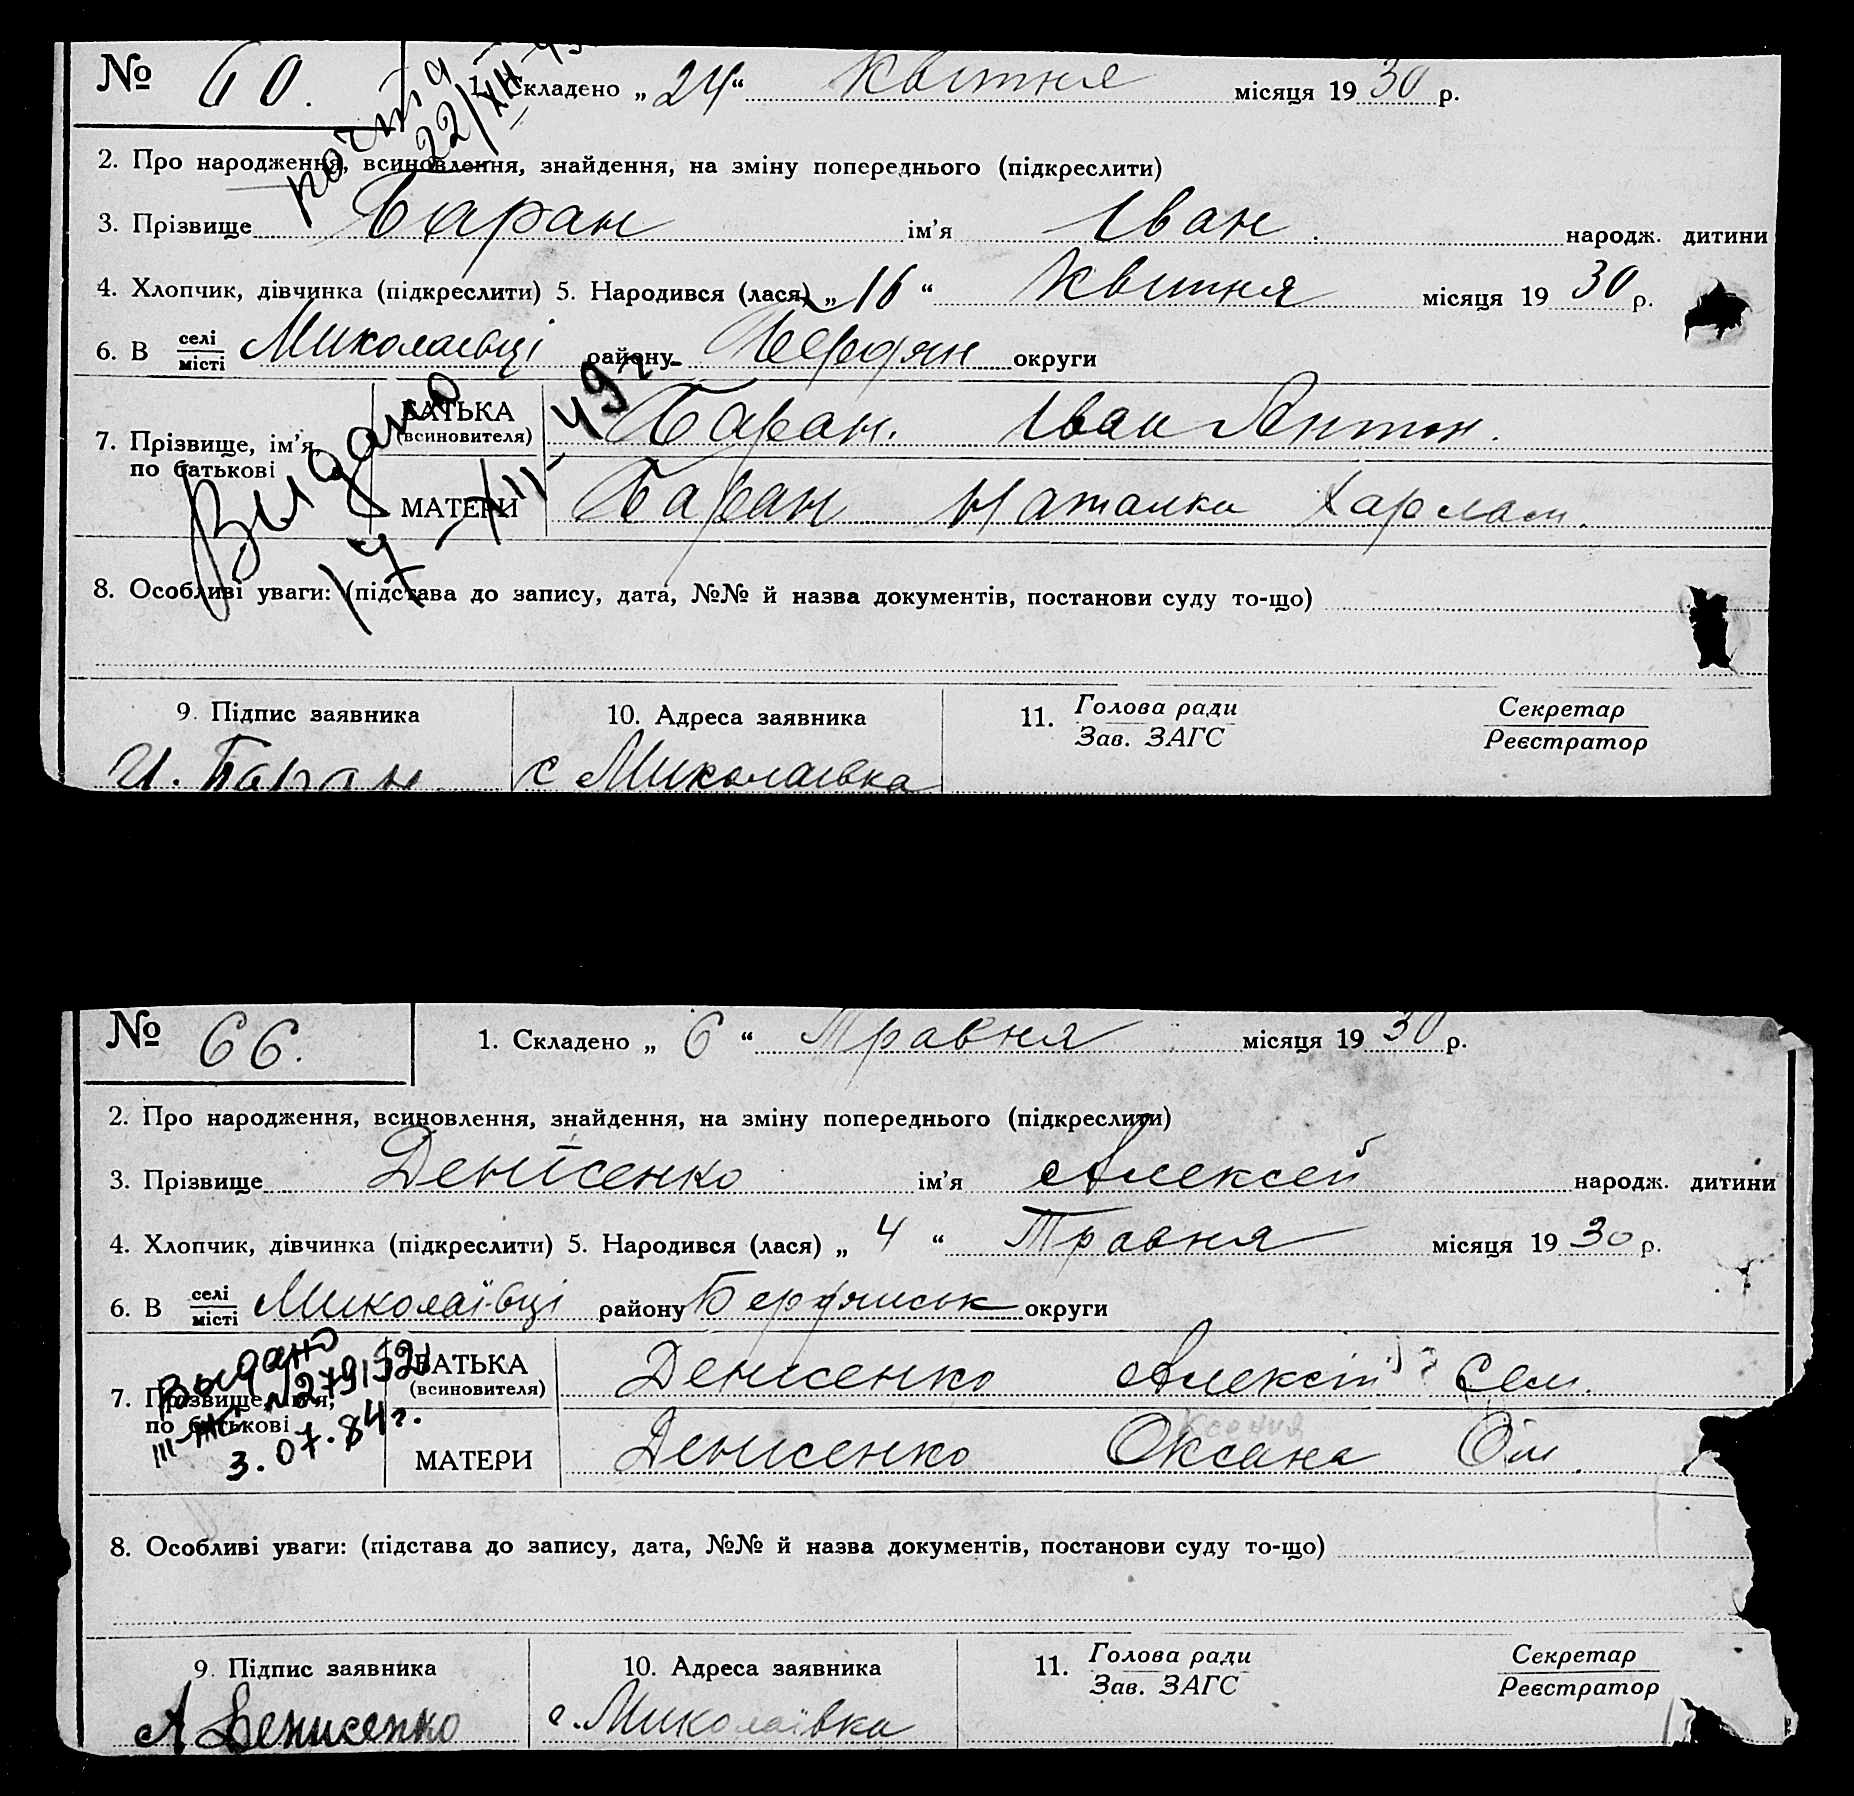 № 60.
1. Складено „24“ квітня місяця 1930 р.
почта
22/XII-
2. Про народження, всиновлення, знайдення, на зміну попереднього (підкреслити)
3. Прізвище Баран ім'я Іван народж. дитини
4. Хлопчик, дівчинка (підкреслити) 5. Народився (лася) „16“ квітня місяця 1930 р.
6. В селі Миколаївці району Бердян округи
місті
Видано
17-/II-49 г
7. Прізвище, ім'я, по батькові
БАТЬКА (всиновителя) Баран. Іван Антон.
МАТЕРИ Баран Наталка Харлам.
8. Особливі уваги: (підстава до запису, дата, №№ й назва документів, постанови суду то-що)
9. Підпис заявника 10. Адреса заявника 11. Голова ради Секретар
Зав. ЗАГС Реєстратор
И. Баран с Миколаївка
№ 66.
1. Складено „6“ Травня місяця 1930 р.
2. Про народження, всиновлення, знайдення, на зміну попереднього (підкреслити)
3. Прізвище Денісенко ім'я Алексей народж. дитини
4. Хлопчик, дівчинка (підкреслити) 5. Народився (лася) „4“ Травня місяця 1930 р.
6. В селі Миколаївці району Бердянськ округи
місті
Выдано
III-ЖС №279152
3.07.84г.
7. Прізвище, ім'я, по батькові
БАТЬКА (всиновителя) Денисенко Алексій Сем.
Ксения
МАТЕРИ Денисенко Оксана
8. Особливі уваги: (підстава до запису, дата, №№ й назва документів, постанови суду то-що)
9. Підпис заявника 10. Адреса заявника 11. Голова ради Секретар
Зав. ЗАГС Реєстратор
А Денисенко с. Миколаївка